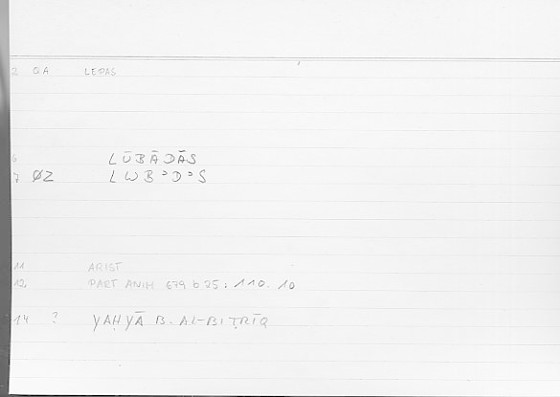 2 0A LEPAS
6 LŪBĀDĀS
7 ØZ LWBʾDʾS
11 ARIST
12 PART ANIM 679 b 25 : 110. 10
14 ? YAḤYĀ B. AL-BIṬRĪQ